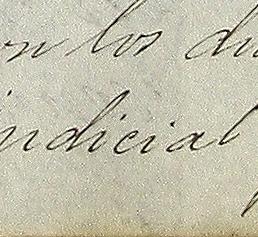 on los
judicial